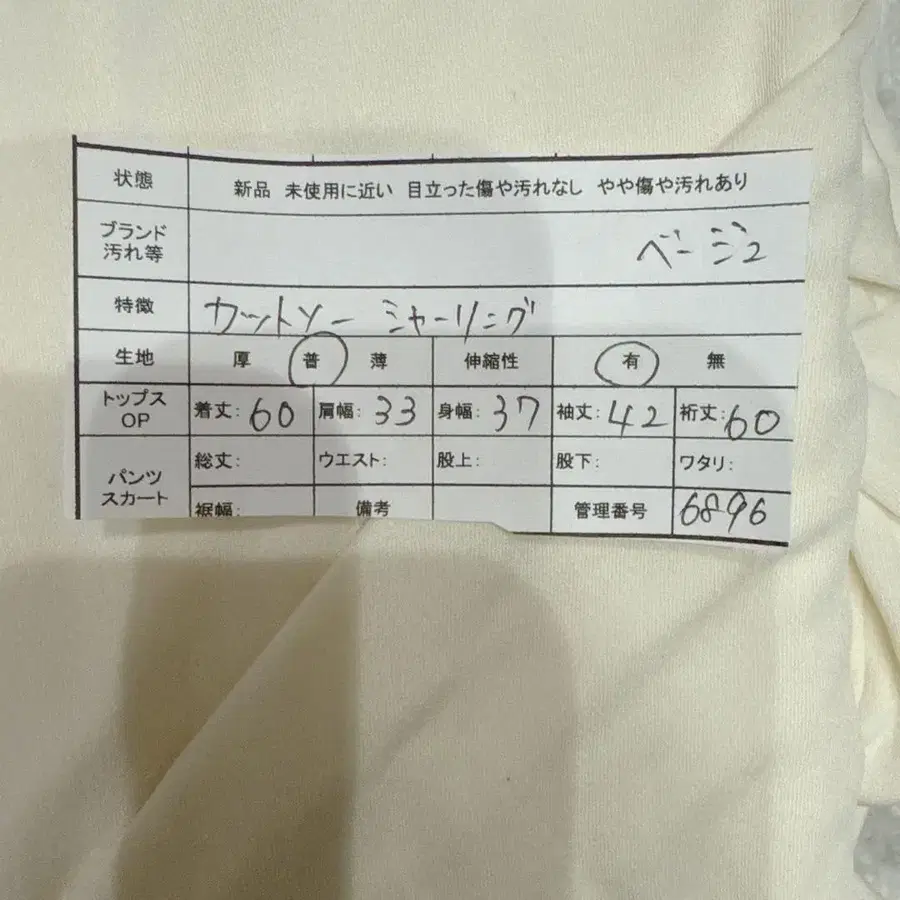 状態 新品 未使用に近い 目立った傷や汚れなし やや傷や汚れあり
ブランド
汚れ等 ベージュ
特徴 カットソー シャーリング
生地 厚 普 薄 伸縮性 有 無
トップス
OP 着丈: 60 肩幅: 33 身幅: 37 袖丈: 42 裄丈: 60
パンツ
スカート 総丈: ウエスト: 股上: 股下: ワタリ:
裾幅: 備考 管理番号 6896